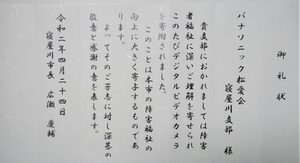 御礼状
パナソニック松愛会
寝屋川支部 様
貴支部におかれましては障害
者福祉に深いご理解を寄せられ
このたびデジタルビデオカメラ
を寄附されました。
このことは本市の障害福祉の
向上に大きく寄与するものであ
ります。
よってそのご芳志に対し深甚の
敬意と感謝の意を表します。
令和二年四月二十四日
寝屋川市長 広瀬慶輔